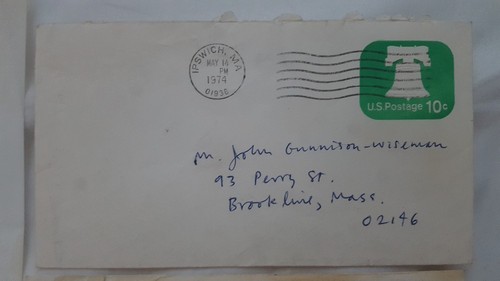 IPSWICH, MA
MAY 14
PM
1974
01938
U.S. Postage 10c
Mr. John Gunnison-Wiseman
93 Perry St.
Brookline, Mass.
02146